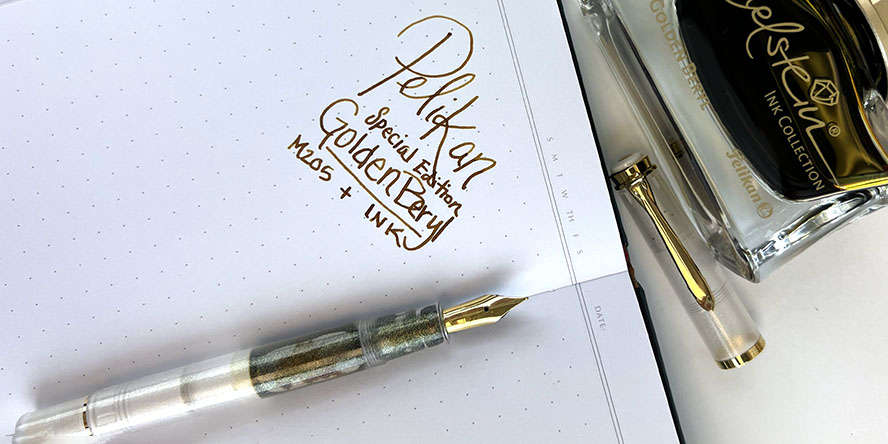 Pelikan
Special Edition
Golden Beryl
M205 + INK
S M T W TH F S
DATE:
GOLDEN BERYL
elstein
INK COLLECTION
Pelikan